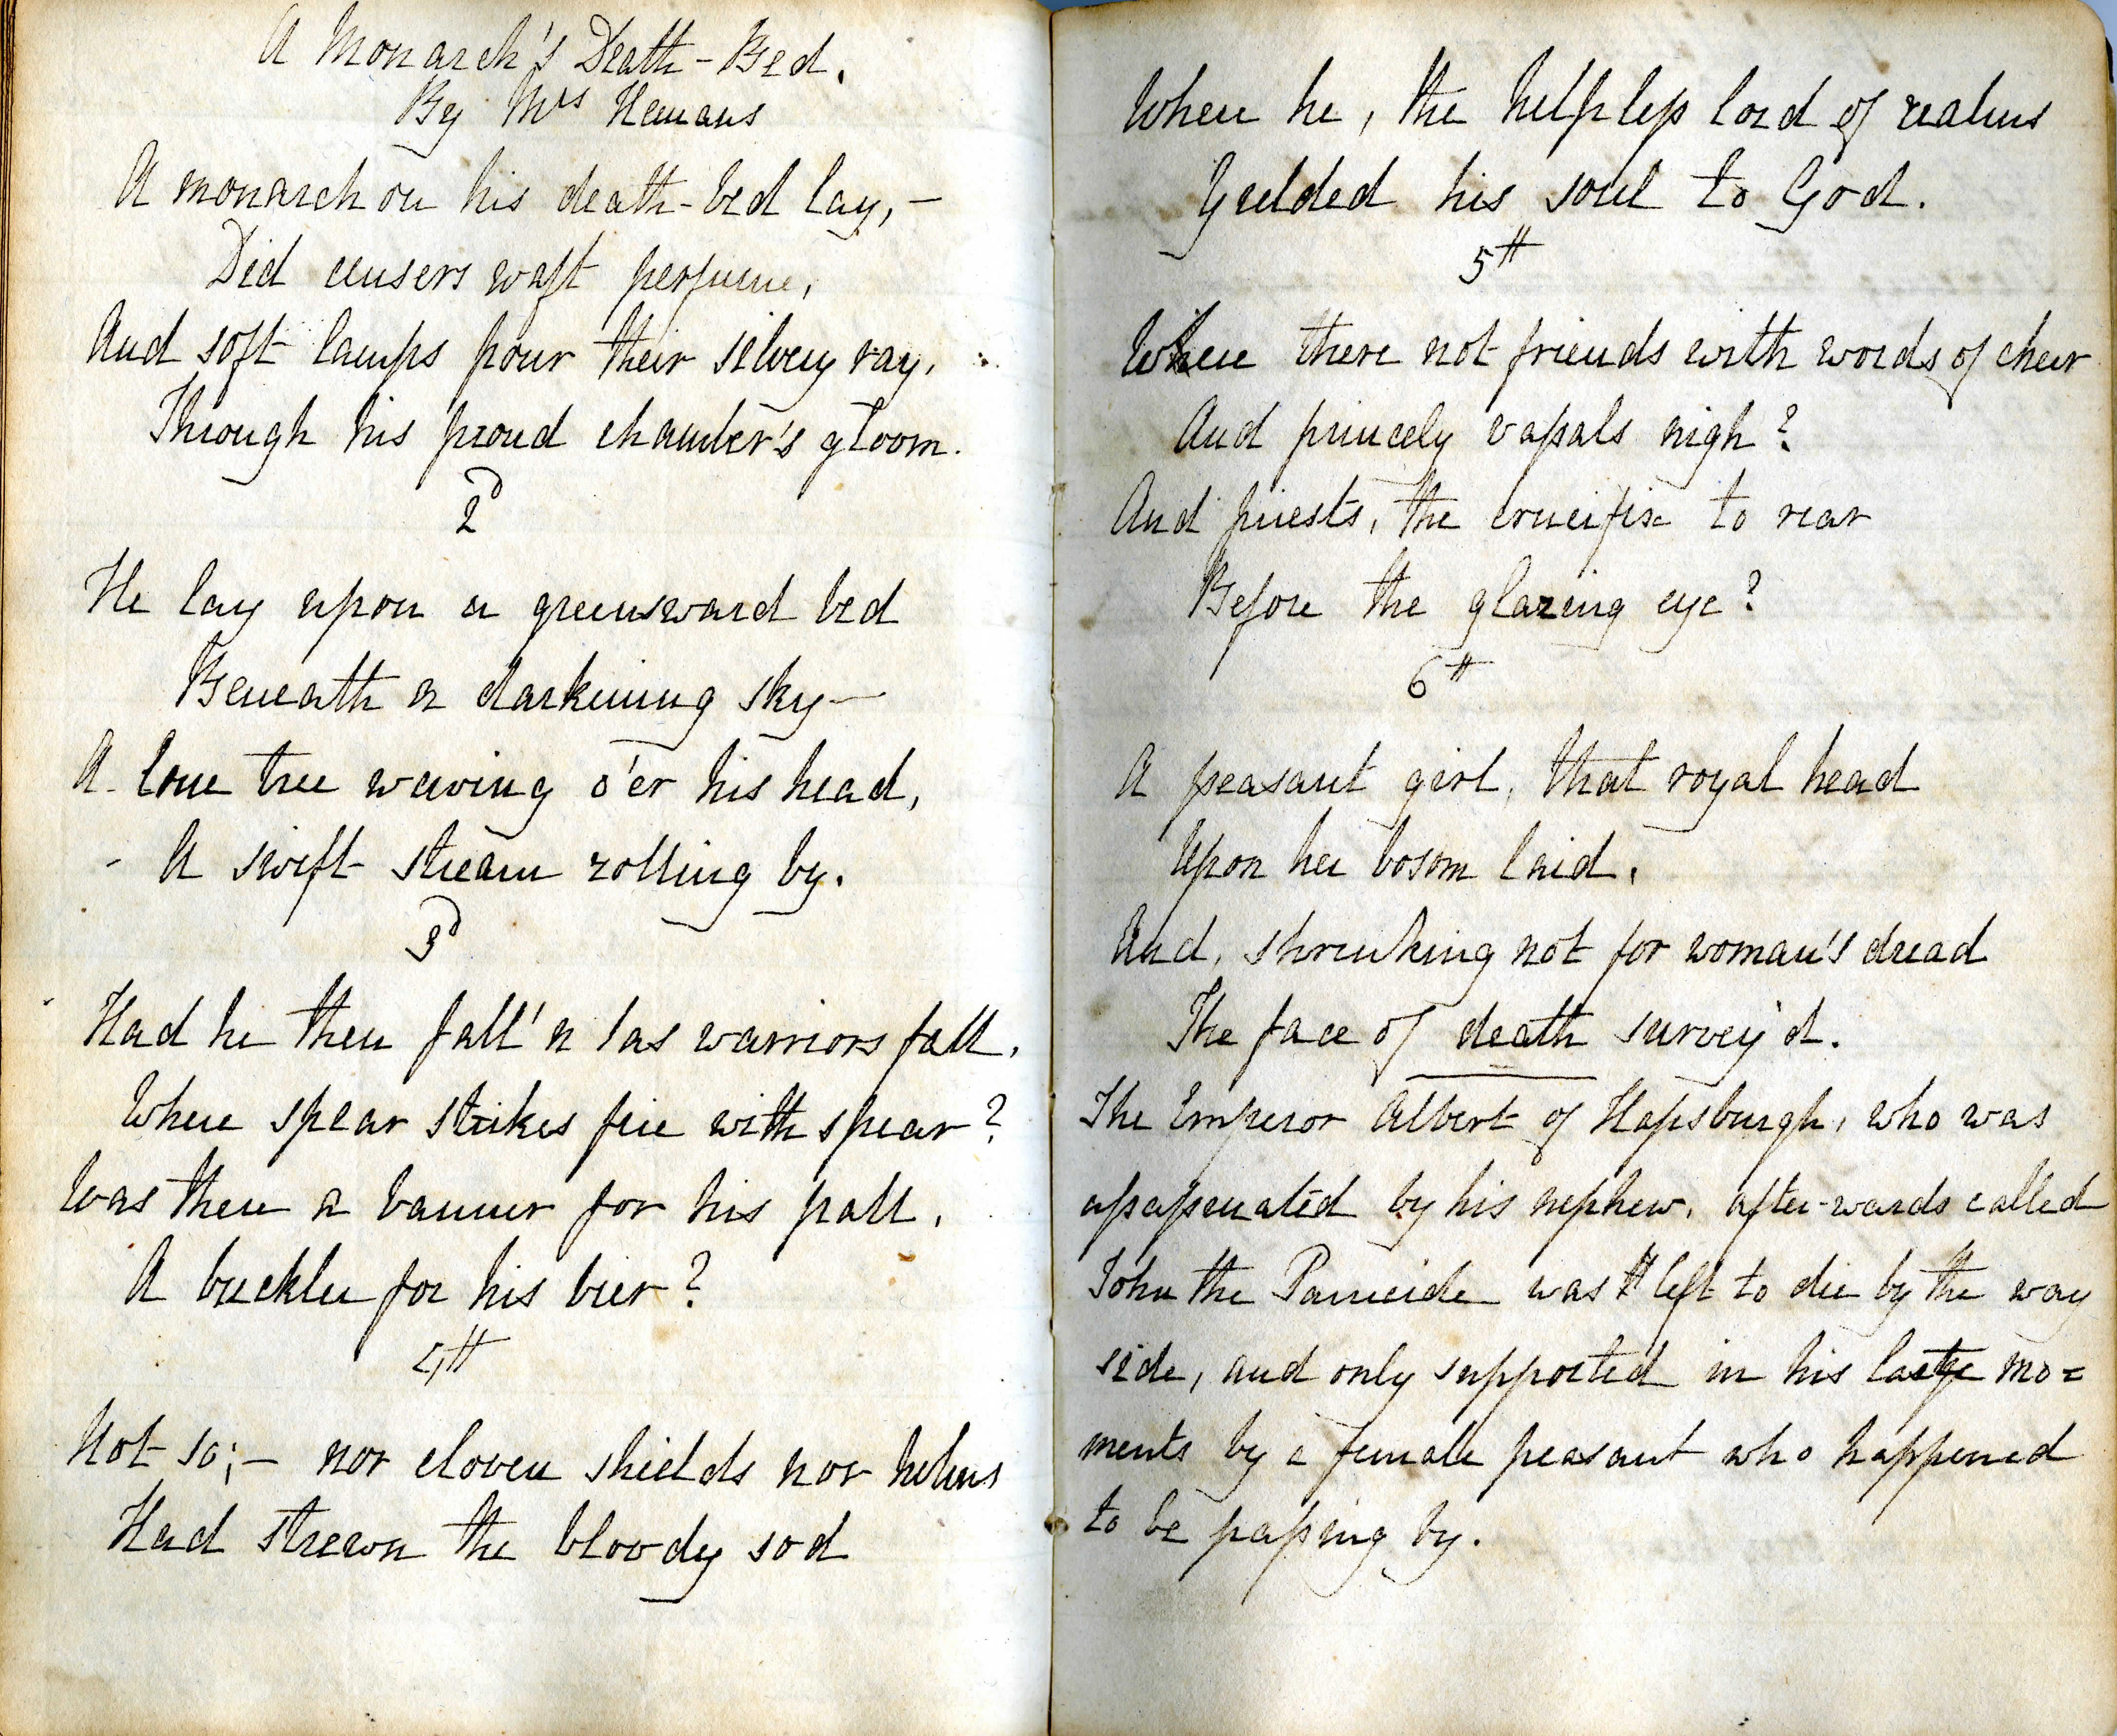 A Monarch's Death-Bed.
By Mrs Hemans
A monarch on his death-bed lay, –
Did censers waft perfume,
And soft lamps pour their silvery ray,
Through his proud chamber's gloom.
2d
He lay upon a greensward bed
Beneath a darkening sky –
A lone tree waving o'er his head,
A swift stream rolling by.
3d
Had he then fall'n as warriors fall,
Where spear strikes fire with spear?
Was there a banner for his pall,
A buckler for his bier?
4th
Not so; – nor cloven shields nor helms
Had strewn the bloody sod
Where he, the helpless lord of realms
Yielded his soul to God.
5th
Were there not friends with words of cheer
And princely vassals nigh?
And priests, the crucifix to rear
Before the glazing eye?
6th
A peasant girl, that royal head
Upon her bosom laid,
And, shrinking not for woman's dread
The face of death survey'd.
The Emperor Albert of Hapsburgh, who was
assassinated by his nephew, after-wards called
John the Parricide was left to die by the way
side, and only supported in his last mo=
ments by a female peasant who happened
to be passing by.